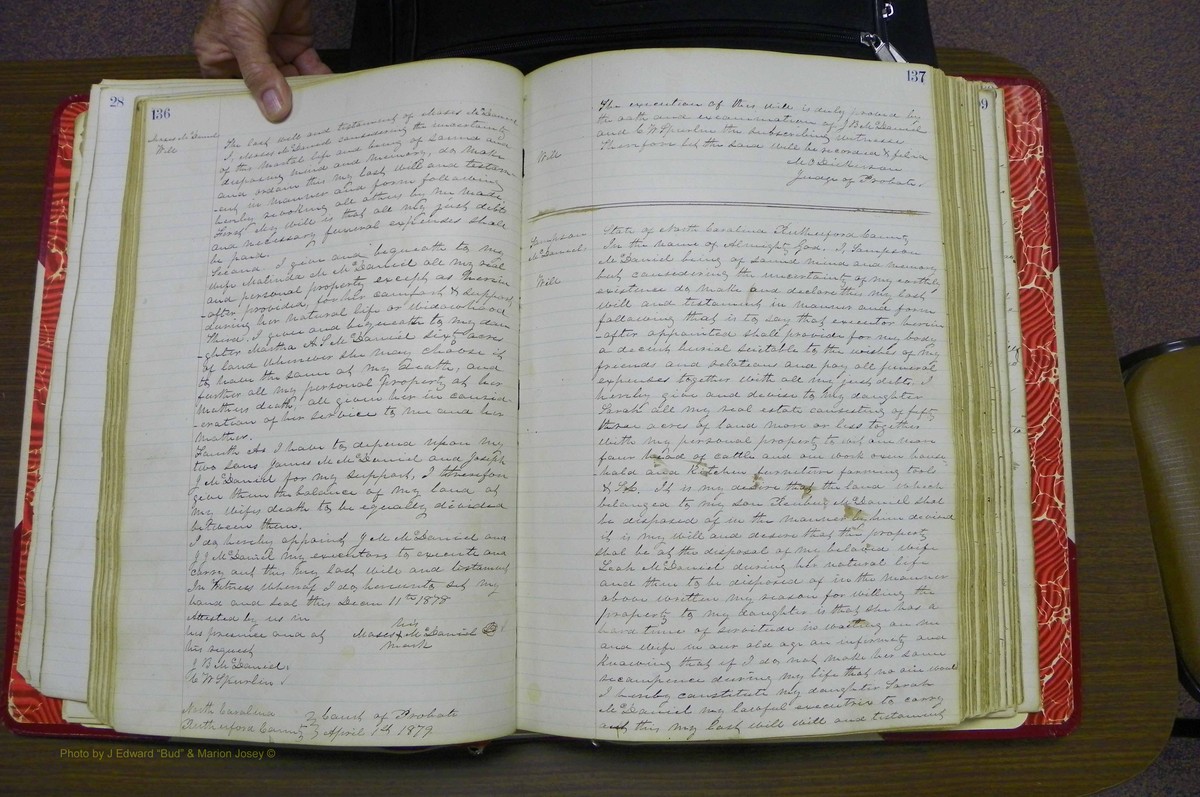 28
136
Moses McDaniel
Will
The last will and testament of Moses McDaniel
I, Moses McDaniel considering the uncertainty
of this mortal life and being of sound and
disposing mind and memory, do make
and ordain this my last will and testam
-ent in manner and form following
hereby revoking all others by me made
First My will is that all my just debts
and necessary funeral expenses shall
be paid.
Second. I give and bequeath to my
wife Malinda M McDaniel all my real
and personal property except as herein
-after provided, for her comfort & support
during her natural life or widowhood
Third. I give and bequeath to my dau
-ghter Martha A S McDaniel sixty acres
of land whenever she may choose it
to have the same at my death, and
further all my personal property at her
mothers death, all given her in consid-
-eration of her service to me and her
mother.
Fourth As I have to depend upon my
two sons James M McDaniel and Joseph
J McDaniel for my support, I therefore
give them the balance of my land at
my wifes death to be equally divided
between them.
I do hereby appoint J M McDaniel and
J J McDaniel my executors to execute and
carry out this my last will and testament
In Witness whereof I do hereunto set my
hand and seal this Decem 11th 1878
Attested by us in
his presence and at
his request
J B McDaniel
C W Spurlin
his
Moses X McDaniel
mark
North Carolina
Rutherford County
Court of Probate
April 7th 1879
137
Will
The execution of this will is duly proved by
the oath and examination of J B McDaniel
and C W Spurlin the subscribing witnesses
Therefore let the said will be recorded & filed
M O Dickerson
Judge of Probate
Sampson
McDaniel
Will
State of North Carolina Rutherford County
In the name of Almighty God. I Sampson
McDaniel being of sound mind and memory
but considering the uncertainty of my earthly
existence do make and declare this my last
will and testament in manner and form
following that is to say that executor herein
-after appointed shall provide for my body
a decent burial suitable to the wishes of my
friends and relations and pay all funeral
expenses together with all my just debts. I
hereby give and devise to my daughter
Sarah all my real estate consisting of fifty
three acres of land more or less together
with my personal property to wit one man
four head of cattle and one work oxen house
hold and kitchen furniture farming tools
It is my desire that the land which
belonged to my son McDaniel shal
be disposed of in the manner by him devised
it is my will and desire that this property
shal be at the disposal of my beloved wife
Leah McDaniel during her natural life
and them to be disposed of in the manner
above written my reason for willing the
property to my daughter is that she has a
hard time of servitude in waiting on me
and wife in our old age an infirmity and
knowing that if I do not make her some
recompence during my life that no one would
I hereby constitute my daughter Sarah
McDaniel my lawful executrix to carry
out this my last will will and testament
Photo by J Edward "Bud" & Marion Josey ©